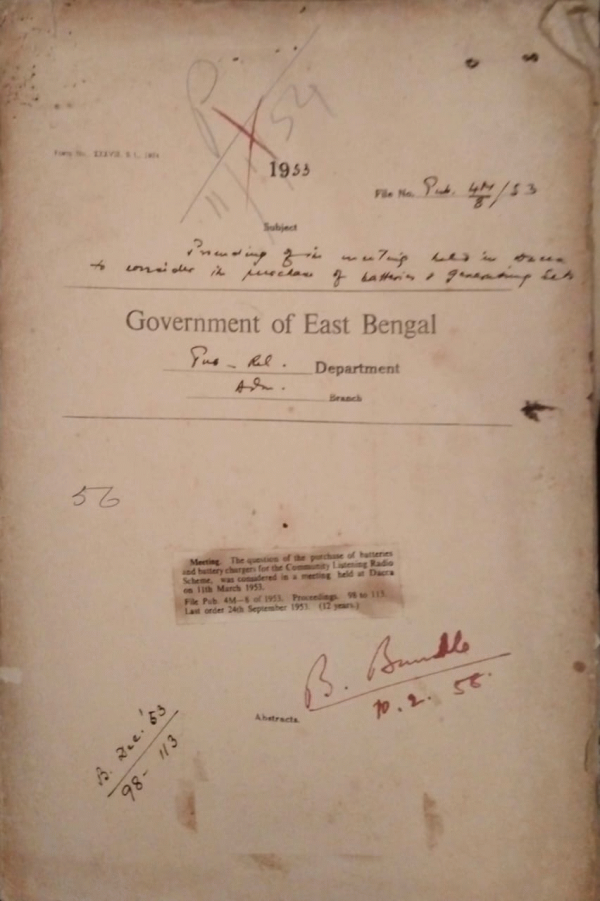 P
11/1/54
1953
File No. Pub. 4M/8/53
Subject
Proceeding of the meeting held in Dacca
to consider the purchase of batteries & generating sets
Government of East Bengal
Pub - Rel. Department
Adm. Branch
56
Meeting. The question of the purchase of batteries
and battery chargers for the Community Listening Radio
Scheme, was considered in a meeting held at Dacca
on 11th March 1953.
File Pub. 4M—8 of 1953. Proceedings. 98 to 113.
Last order 24th September 1953. (12 years.)
B. Bundle
10.2.56.
Abstracts.
B. Dec. '53
98 - 113